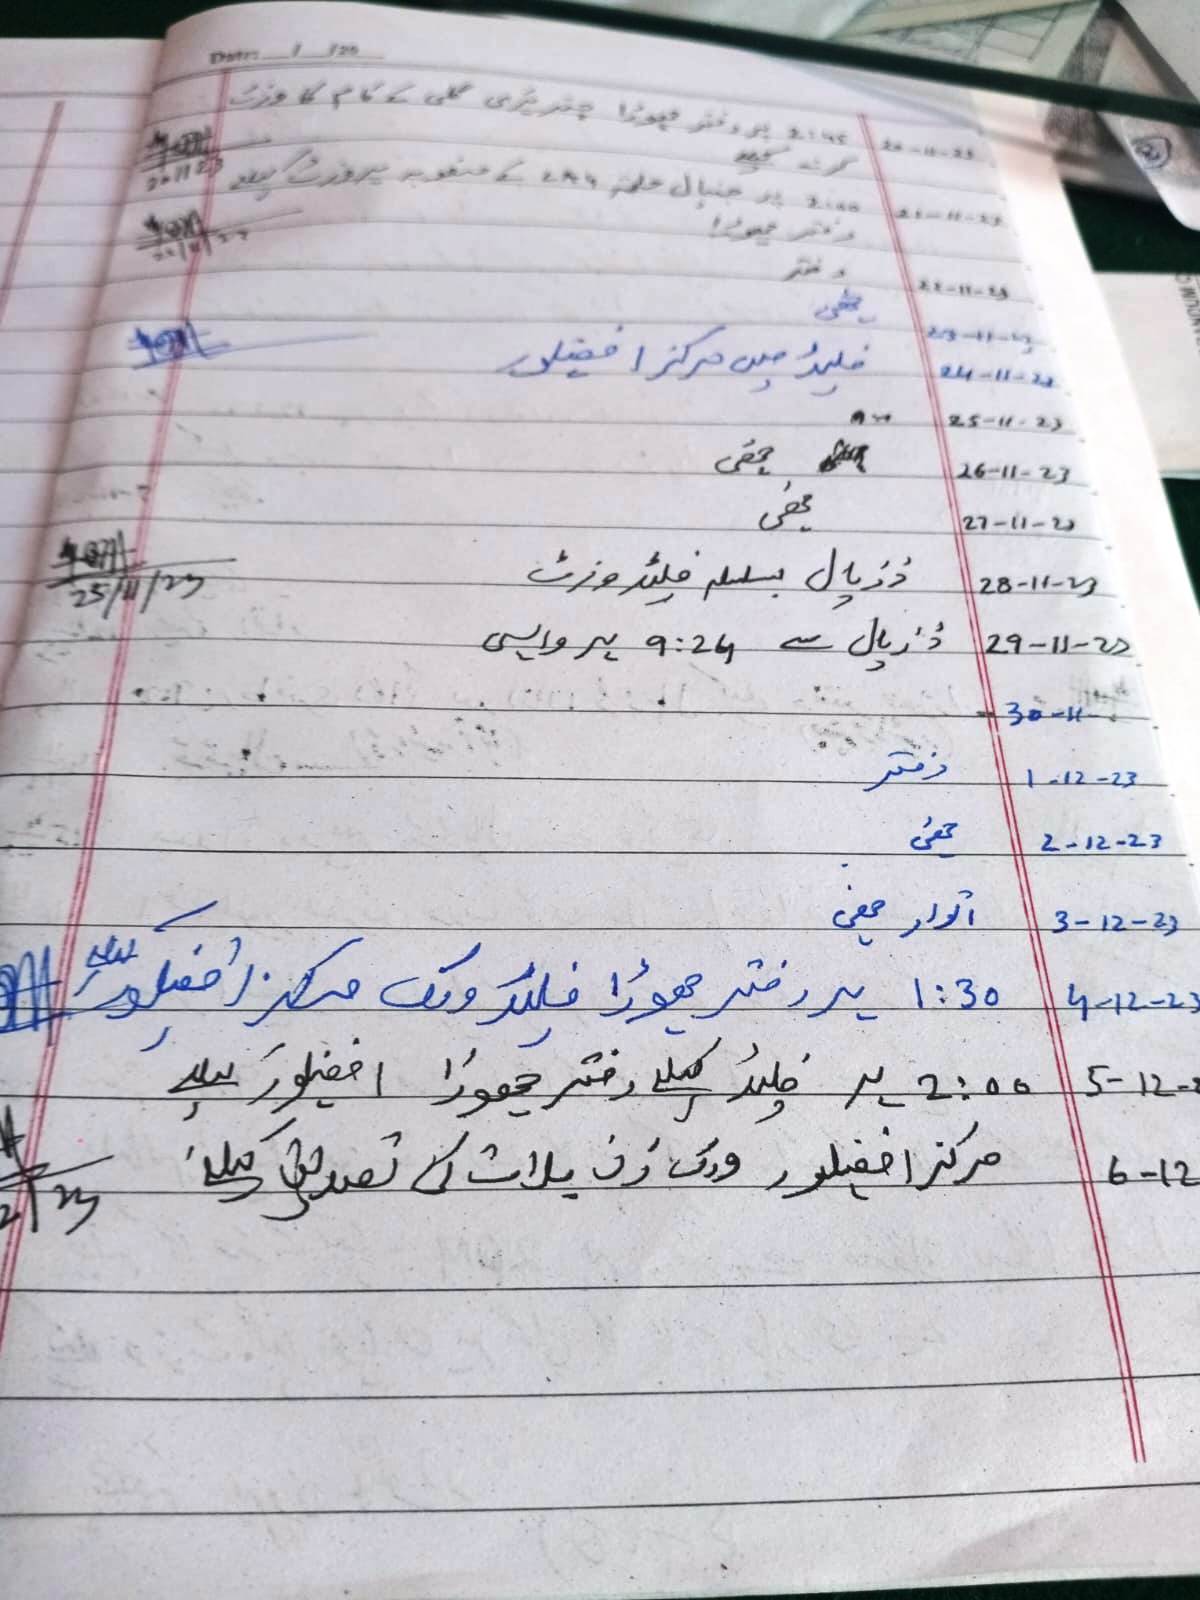 Date: __/__/20
20-11-23 2:45 پر دفتر چھوڑا گلی کے کام کا وزٹ
کرنے کیلئے
20 11 23
21-11-23 2:00 پر حلقہ کے منصوبہ پر وزٹ کیلئے
دفتر چھوڑا
22-11-23 دفتر
23-11-23 چھٹی
24-11-23 فیلڈ میں مرکز افضلور
25-11-23
26-11-23 چھٹی
27-11-23 چھٹی
28-11-23 ڈڑیال بسلسلہ فیلڈ وزٹ
25/11/23
29-11-23 ڈڑیال سے 9:24 پر واپسی
30-11
1-12-23 دفتر
2-12-23 چھٹی
3-12-23 اتوار چھٹی
4-12-23 1:30 پر دفتر چھوڑا فیلڈ ورک مرکز افضلور کیلئے
5-12-2 2:00 پر فیلڈ کیلئے دفتر چھوڑا افضلور کیلئے
6-12 مرکز افضلور ورک ڈن پلاٹ کی تصدیق کیلئے